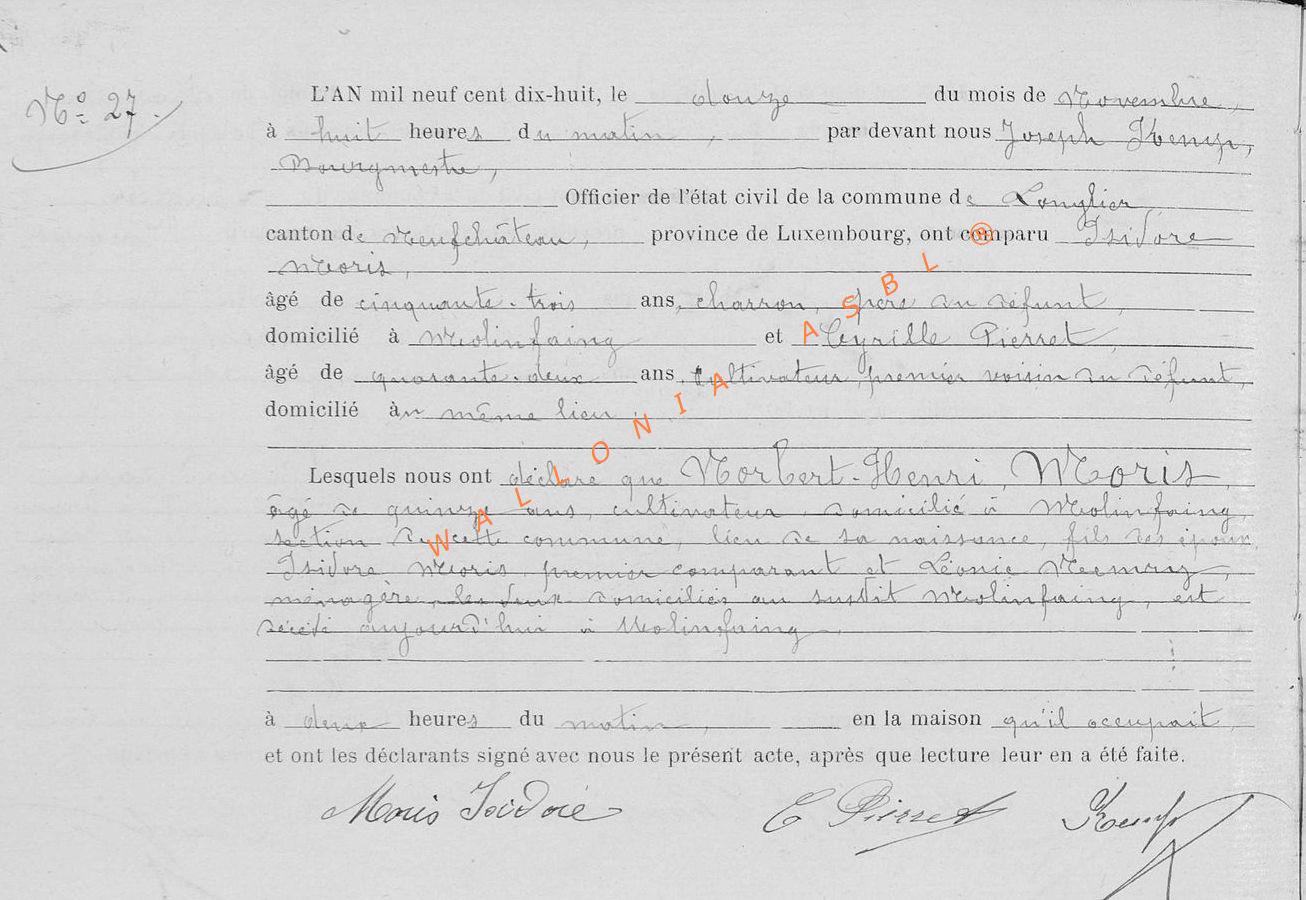 Nº 27.
L'AN mil neuf cent dix-huit, le douze du mois de Novembre,
à huit heures du matin, par devant nous Joseph Kemp,
Bourgmestre,
Officier de l'état civil de la commune de Longlier,
canton de Neufchâteau, province de Luxembourg, ont comparu Isidore
Moris,
âgé de cinquante-trois ans, charron, père du défunt,
domicilié à Molinfaing et Cyrille Pierret,
âgé de quarante-deux ans, cultivateur, premier voisin du défunt,
domicilié au même lieu.
Lesquels nous ont déclaré que Norbert-Henri Moris,
âgé de quinze ans, cultivateur, domicilié à Molinfaing,
section de cette commune, lieu de sa naissance, fils des époux
Isidore Moris, premier comparant et Léonie
ménagère, les deux domiciliés au susdit Molinfaing, est
décédé aujourd'hui à Molinfaing
à deux heures du matin, en la maison qu'il occupait,
et ont les déclarants signé avec nous le présent acte, après que lecture leur en a été faite.
Moris Isidore C Pierret Kemp
WALLONIA ASBL ®